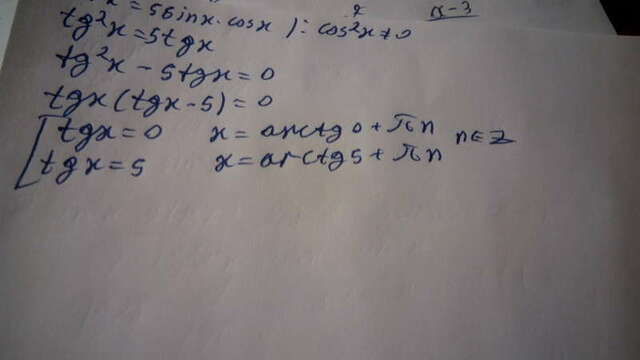 x = 5sinx·cosx ) : cos²x≠0
x-3
tg²x = 5tgx
tg²x - 5tgx = 0
tgx(tgx-5) = 0
[ tgx = 0 x = arctg0 + πn
tgx = 5 x = arctg5 + πn n∈Z